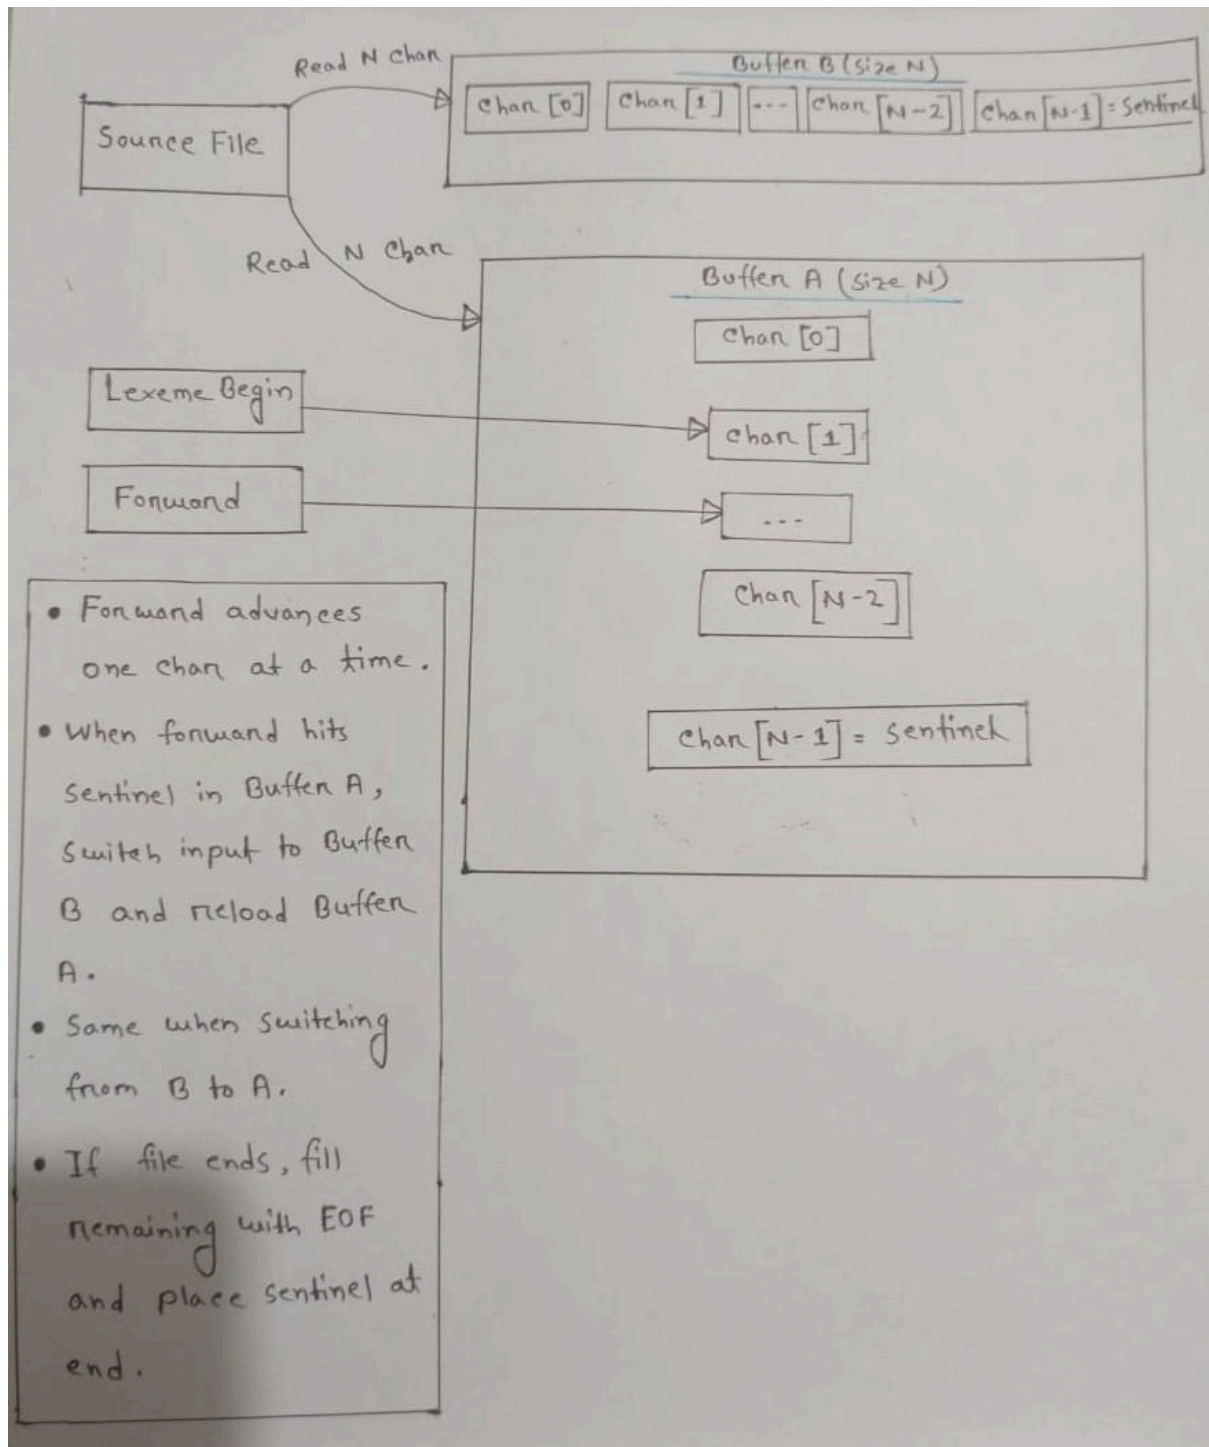 Read N Char
Buffer B (Size N)
Char [0]
Char [1]
...
Char [N-2]
Char [N-1] = Sentinel
Source File
Read N Char
Buffer A (Size N)
Char [0]
Lexeme Begin
Char [1]
Forward
...
Char [N-2]
Char [N-1] = Sentinel
• Forward advances
one char at a time.
• When forward hits
Sentinel in Buffer A,
Switch input to Buffer
B and reload Buffer
A.
• Same when switching
from B to A.
• If file ends, fill
remaining with EOF
and place sentinel at
end.